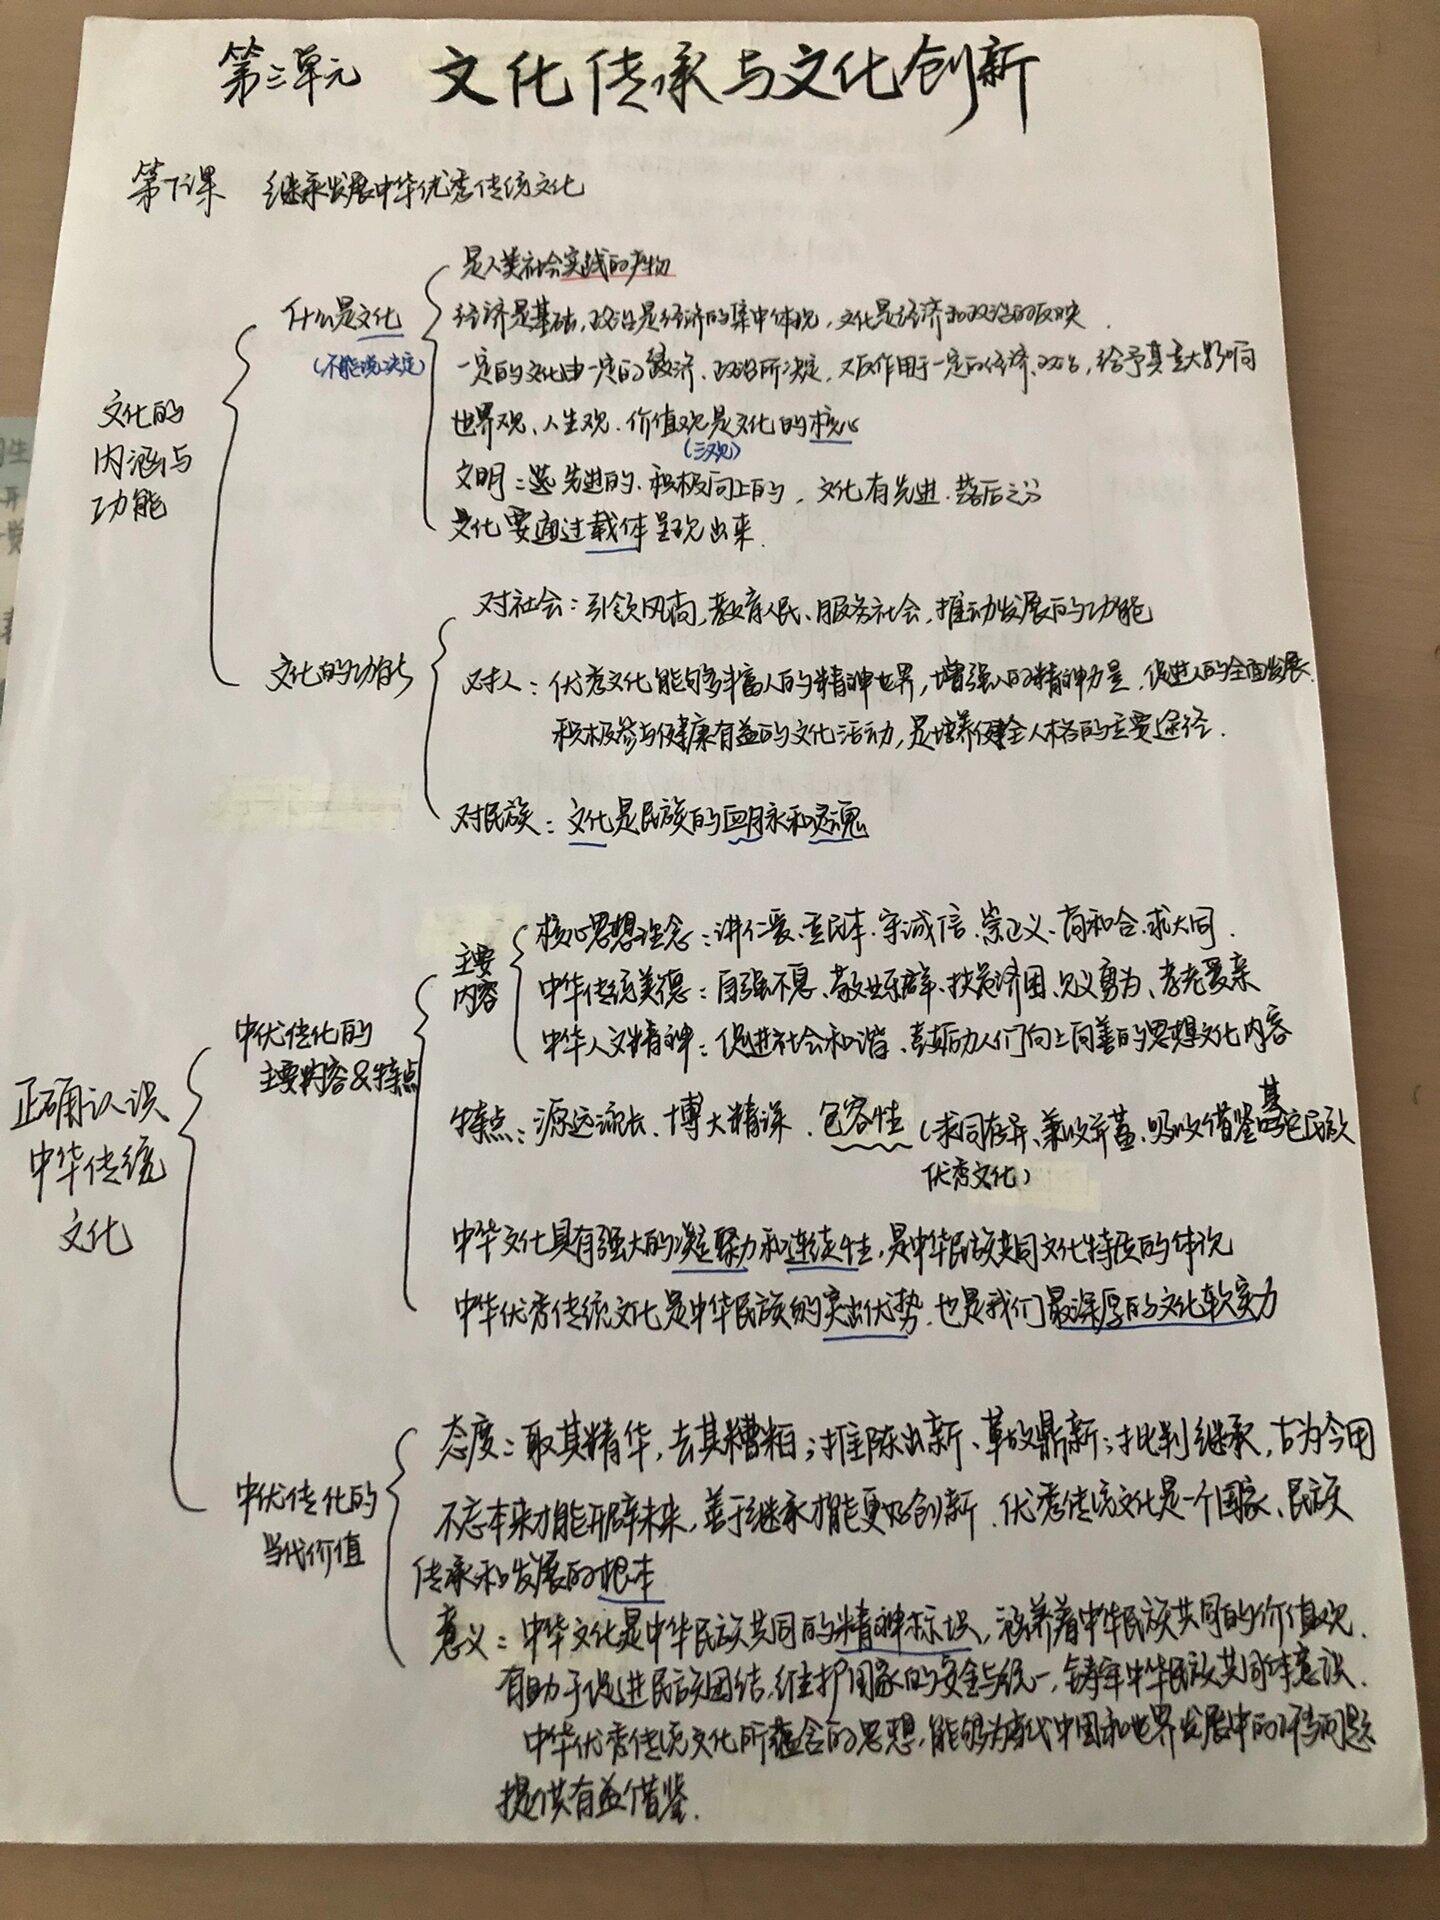 第三单元 文化传承与文化创新
第下课 继承发展中华优秀传统文化
文化的
内涵与
功能
什么是文化
(不能说决定)
是人类社会实践的产物
经济是基础,政治是经济的集中体现,文化是经济和政治的反映.
一定的文化由一定的经济、政治所决定,又反作用于一定的经济、政治,给予其重大影响
世界观、人生观、价值观是文化的核心
(三观)
文明:是先进的、积极向上的,文化有先进、落后之分
文化要通过载体呈现出来.
文化的功能
对社会:引领风尚,教育人民、服务社会,推动发展的功能
对人:优秀文化能够丰富人的精神世界,增强人的精神力量,促进人的全面发展.
积极参与健康有益的文化活动,是培养健全人格的主要途径.
对民族:文化是民族的血脉和灵魂
正确认识
中华传统
文化
中优传化的
主要内容&特点
主要
内容
核心思想理念:讲仁爱、重民本、守诚信、崇正义、尚和合、求大同.
中华传统美德:自强不息、敬业乐群、扶危济困、见义勇为、孝老爱亲
中华人文精神:促进社会和谐、鼓励人们向上向善的思想文化内容
特点:源远流长、博大精深、包容性(求同存异、兼收并蓄、吸收借鉴其它民族
优秀文化)
中华文化具有强大的凝聚力和连续性,是中华民族共同文化特质的体现
中华优秀传统文化是中华民族的突出优势,也是我们最深厚的文化软实力
中优传化的
当代价值
态度:取其精华,去其糟粕;推陈出新、革故鼎新;批判继承,古为今用
不忘本来才能开辟未来,善于继承才能更好创新.优秀传统文化是一个国家、民族
传承和发展的根本
意义:中华文化是中华民族共同的精神标识,涵养着中华民族共同的价值观.
有助于促进民族团结,维护国家的安全与统一,铸牢中华民族共同体意识.
中华优秀传统文化所蕴含的思想,能够为当代中国和世界发展中的问题
提供有益借鉴.